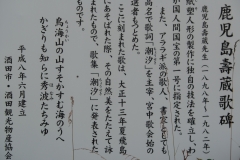 鹿児島壽蔵歌碑
鹿児島壽蔵先生(一八九八年‐一九八二年)
が紙人形の製作に独自の技法を確立しわ
が国人間国宝の第一号に指定された。
また、アララギ派の歌人、書家としても
高名で歌詞「潮汐」を主宰、宮中歌会始の
選者もつとめた。
ここに刻まれた歌は、大正十三年夏飛島
に在った際、その自然美をたたえて詠
まれたもので、歌集「潮汐」に発表された
ものです。
鳥海山の山すそかすむ海のうへ
かぎろふ知らに秀波たちみゆ
平成八年六月建立
酒田市・酒田観光物産協会